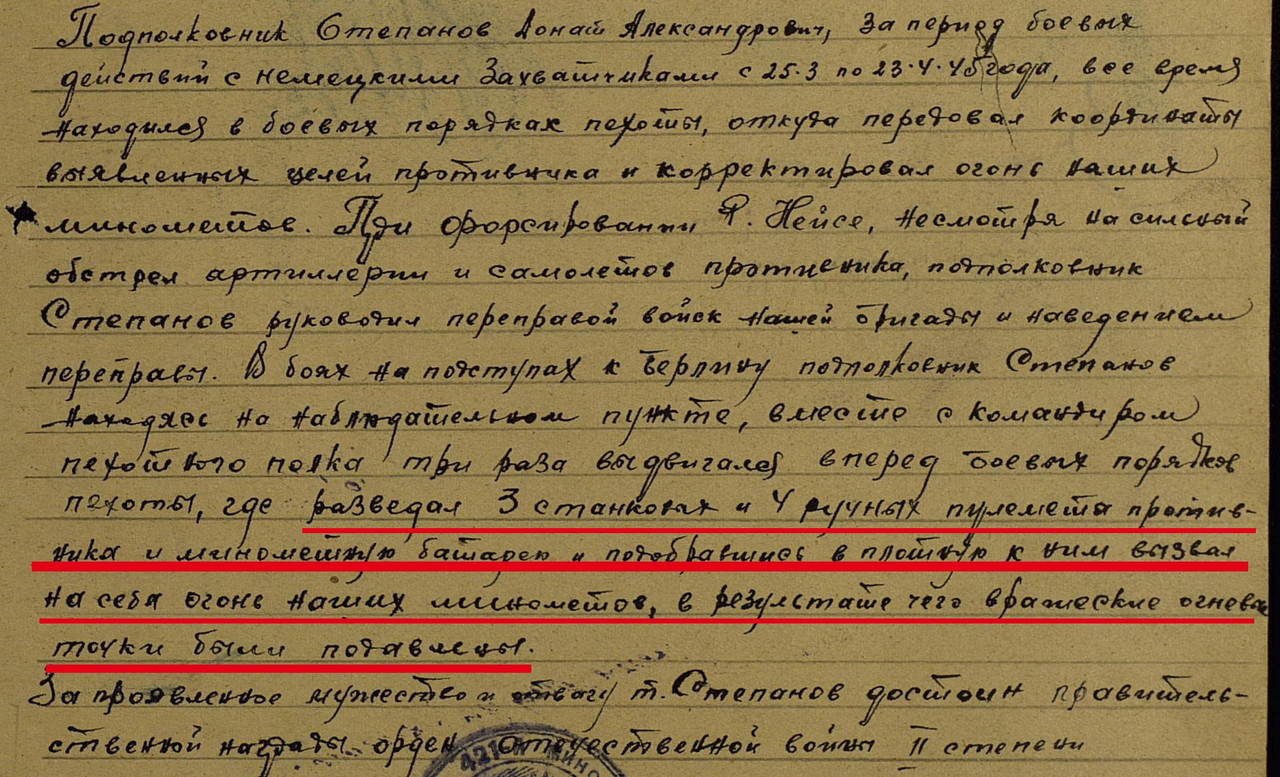 Подполковник Степанов Донат Александрович, за период боевых
действий с немецкими захватчиками с 25.3 по 23.4.45 года, все время
находился в боевых порядках пехоты, откуда передовал координаты
выявленных целей противника и корректировал огонь наших
минометов. При форсировании р. Нейсе, несмотря на сильный
обстрел артиллерии и самолетов противника, подполковник
Степанов руководил переправой войск нашей бригады и наведением
переправы. В боях на подступах к Берлину подполковник Степанов
находясь на наблюдательном пункте, вместе с командиром
пехотного полка три раза выдвигался вперед боевых порядков
пехоты, где разведал 3 станковых и 4 ручных пулемета против-
ника и минометную батарею и подобравшись в плотную к ним вызвал
на себя огонь наших минометов, в результате чего вражеские огневые
точки были подавлены.
За проявленное мужество и отвагу т. Степанов достоин правитель-
ственной награды орден Отечественной войны II степени
421